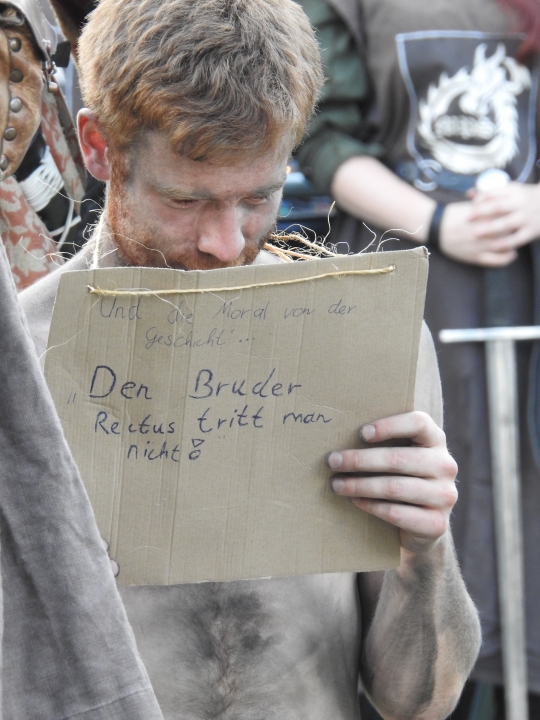 Und die Moral von der
Geschicht'...
„Den Bruder
Rectus tritt man
nicht!"